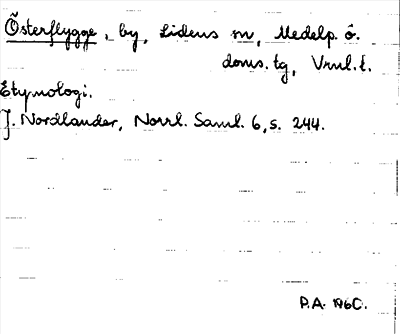 Österflygge, by, Lidens sn, Medelp. ö.
doms.tg, Vrnl. l.
Etymologi.
J. Nordlander, Norrl. Saml. 6, s. 244.
P.A. 1960.